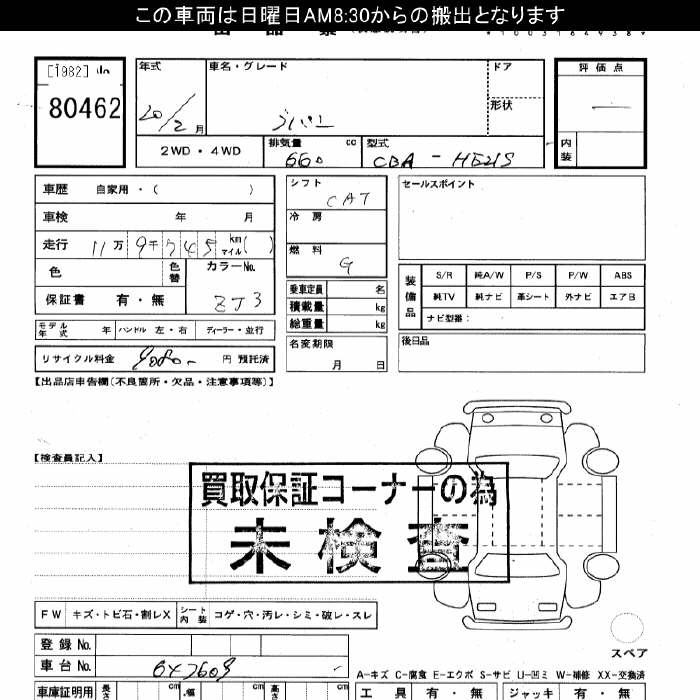 この車両は日曜日AM8:30からの搬出となります
[1982]
80462
年式
20/2月
車名・グレード
ラパン
ドア
形状
2WD・4WD
排気量
660 cc
型式
CBA-HE21S
評価点
内装
車歴 自家用・( )
車検 年 月
走行 11万9千745 km マイル( )
色 色替
カラーNo.
ZJ3
保証書 有・無
モデル年式 年 ハンドル 左・右 ディーラー・並行
リサイクル料金 9080- 円 預託済
シフト
CAT
冷房
燃料
G
乗車定員 名
積載量 kg
総重量 kg
名変期限
月 日
セールスポイント
装備品
S/R 純A/W P/S P/W ABS
純TV 純ナビ 革シート 外ナビ エアB
ナビ型番:
後日品
【出品店申告欄(不良箇所・欠品・注意事項等)】
【検査員記入】
買取保証コーナーの為
未検査
FW キズ・トビ石・割レX シート内装 コゲ・穴・汚レ・シミ・破レ・スレ
スペア
登録No.
車台No.
A-キズ C-腐食 E-エクボ S-サビ U-凹ミ W-補修 XX-交換済
車庫証明用 長さ cm 幅 cm 高さ cm
工具 有・無 ジャッキ 有・無